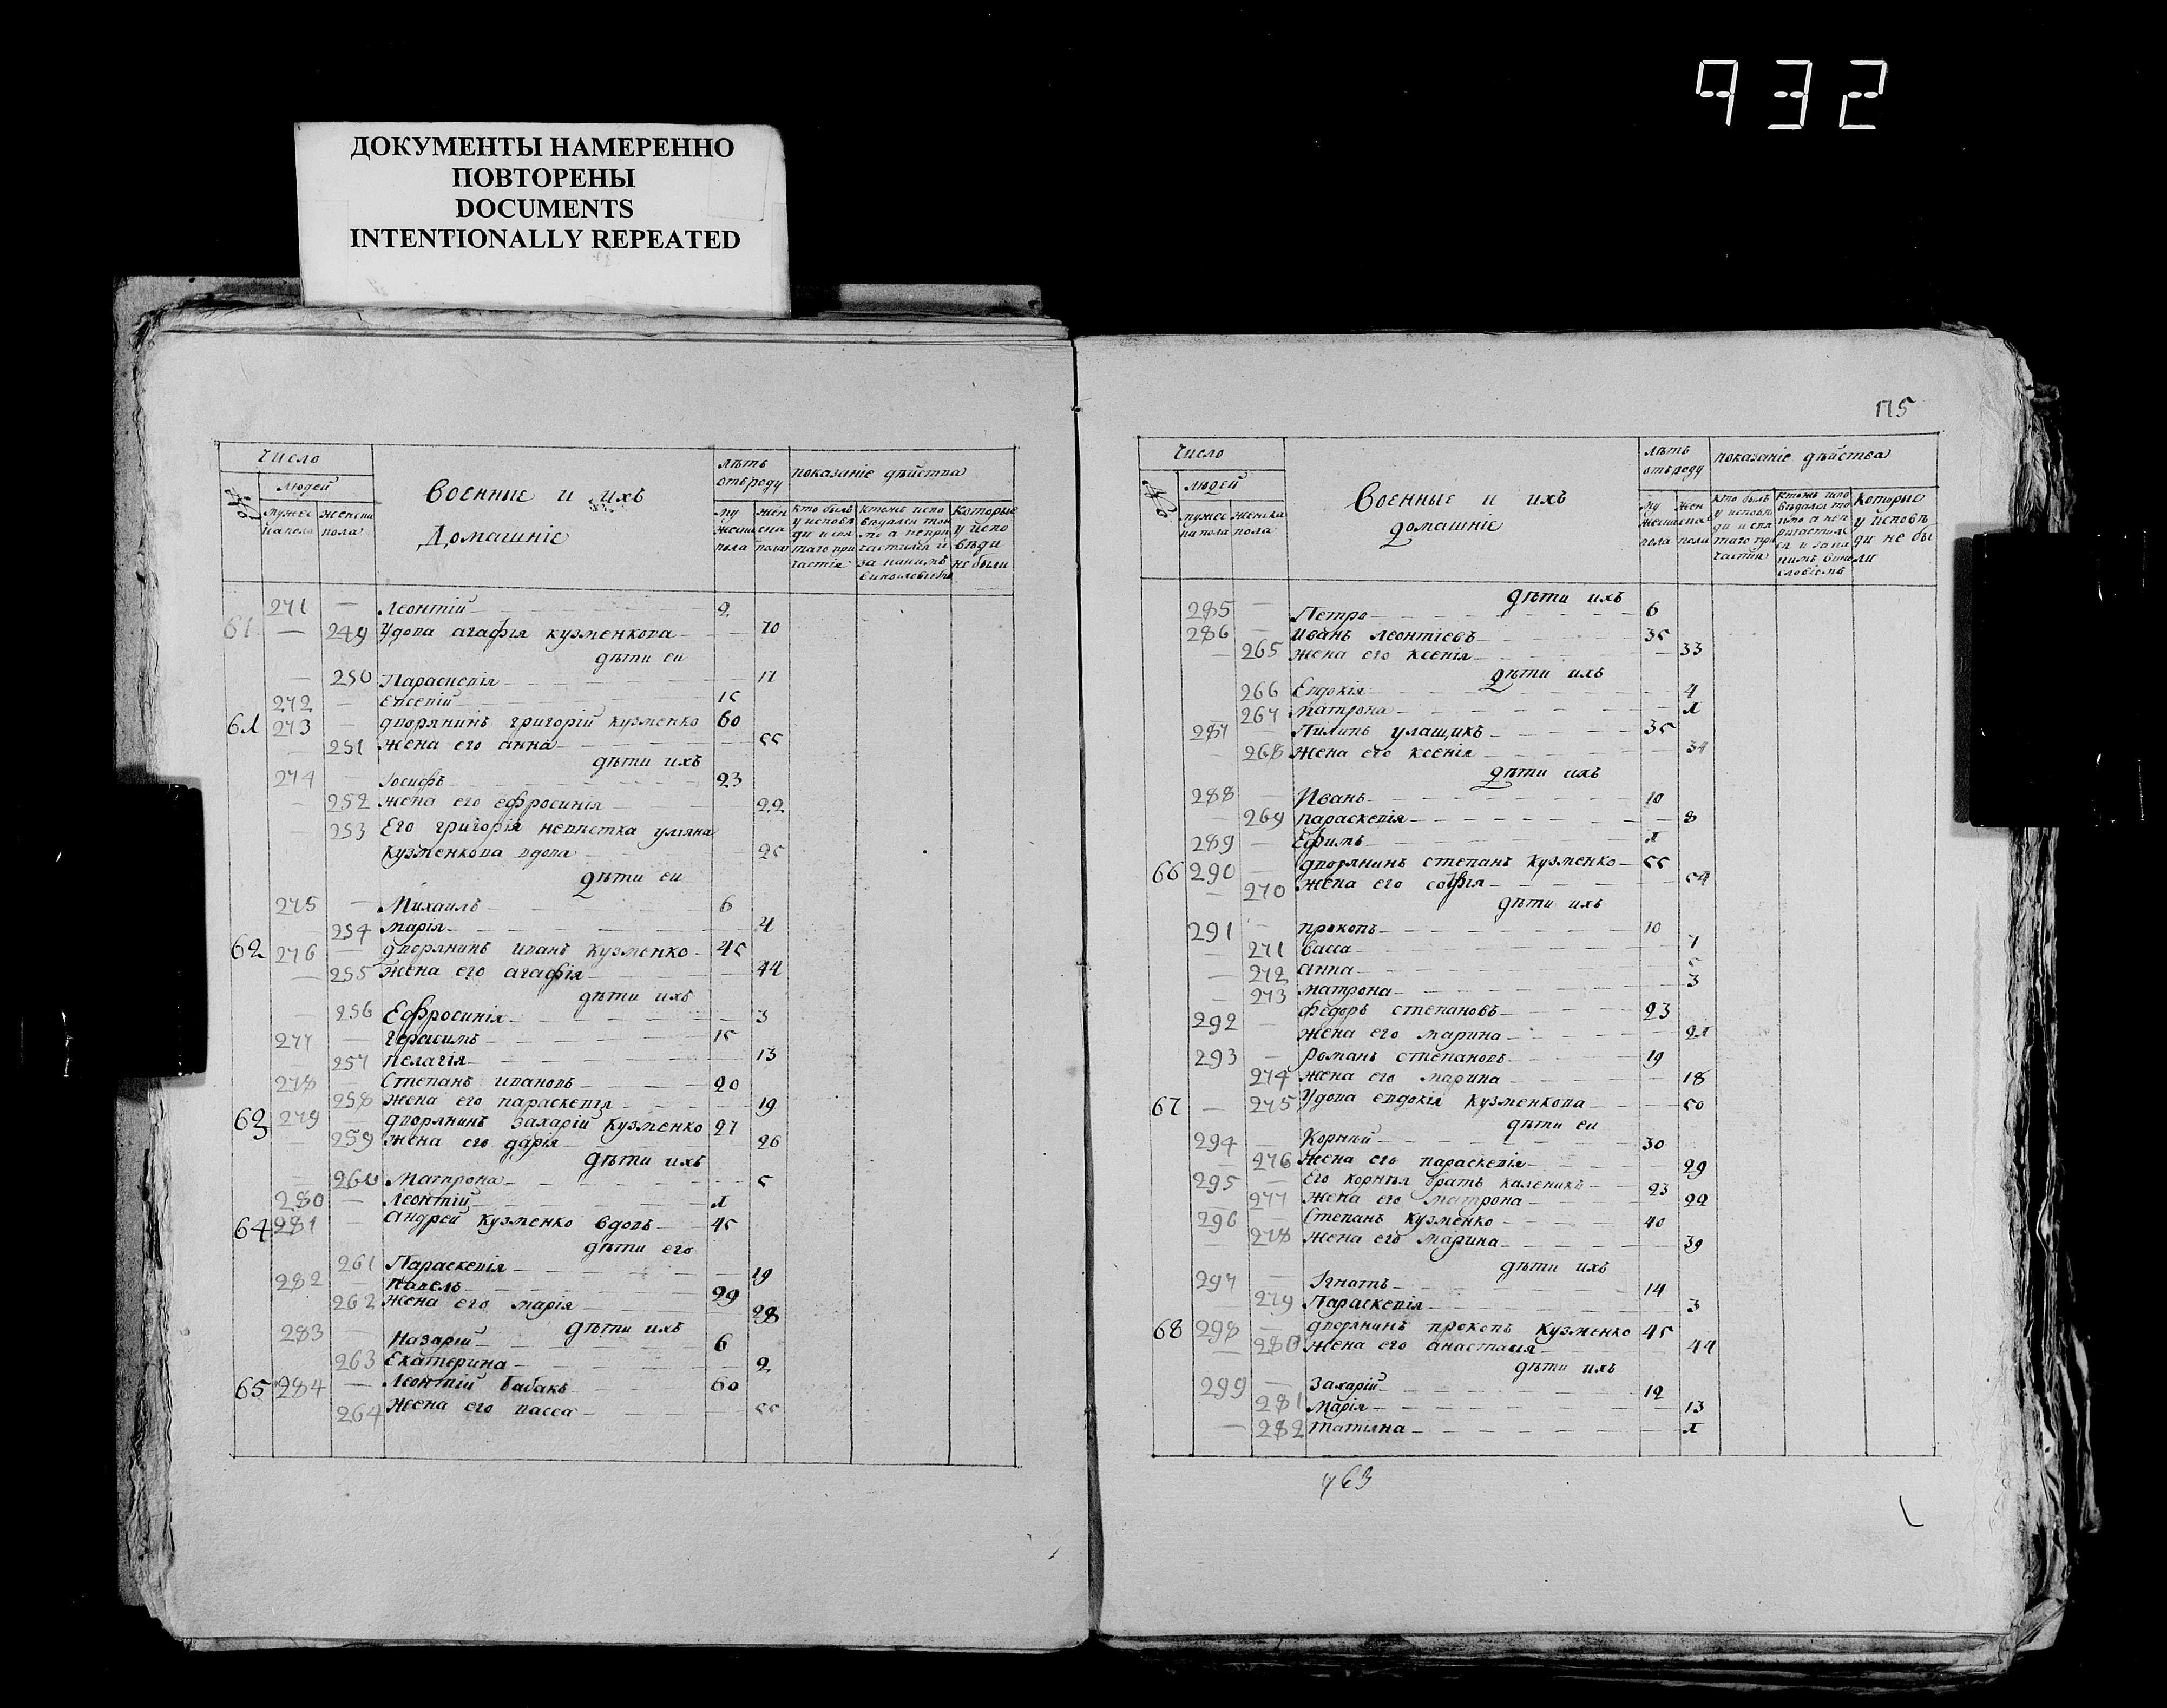 932
ДОКУМЕНТЫ НАМЕРЕННО
ПОВТОРЕНЫ
DOCUMENTS
INTENTIONALLY REPEATED
Число
людей
мужес
ка пола
женска
пола
Военные и ихъ
Домашніе
лѣтъ
отъ роду
му
жеска
пола
жен
ска
пола
показаніе дѣйства
кто былъ
у исповѣ
ди и свя
таго при
частія
271 — Леонтій 2
61 — 249 Удова агафія кузменкова 70
дѣти еи
250 Параскевія 17
272 — Евсевій 15
61 273 — дворянинъ григорій кузменко 60
251 жена его анна 55
дѣти ихъ
274 — Іосифъ 23
252 жена его ефросинія 22
253 Его григорія невистка уліяна
кузменкова вдова 25
дѣти еи
275 — Михаилъ 6
254 марія 4
62 276 — дворянинъ иванъ кузменко 45
255 жена его агафія 44
дѣти ихъ
256 Ефросинія 3
277 — герасимъ 15
257 пелагія 13
278 — Степанъ ивановъ 20
258 жена его параскевія 19
63 279 — дворянинъ захарій кузменко 27
259 жена его дарія 26
дѣти ихъ
260 Матрона 5
280 — Леонтій 1
64 281 — андрей кузменко вдовъ 45
дѣти его
261 Параскевія 19
282 — павелъ 29
262 жена его марія 28
дѣти ихъ
283 — Назарій 6
263 Екатерина 2
65 284 — Леонтій бабакъ 60
264 жена его васса 55
175
Число
людей
мужес
ка пола
женска
пола
Военные и ихъ
домашніе
лѣтъ
отъ роду
му
жеска
пола
жен
ска
пола
показаніе дѣйства
кто былъ
у исповѣ
ди и свя
таго при
частія
которые
у исповѣ
ди не бы
ли
дѣти ихъ
285 — Петро 6
286 — иванъ леонтіевъ 35
265 жена его ксенія 33
дѣти ихъ
266 Евдокія 4
267 матрона 1
287 — Пилипъ улащикъ 35
268 жена его ксенія 34
дѣти ихъ
288 — Иванъ 10
269 параскевія 8
289 — Ефимъ 1
66 290 — дворянинъ степанъ кузменко 55
270 жена его софія 54
дѣти ихъ
291 — прокопъ 10
271 васса 7
272 анна 5
273 матрона 3
292 — федоръ степановъ 23
жена его марина 21
293 — романъ степановъ 19
274 жена его марина 18
67 — 275 Удова евдокія кузменкова 50
дѣти еи
294 — Корнѣй 30
276 жена его параскевія 29
295 — Его корнѣя братъ каленикъ 23
277 жена его матрона 22
296 — Степанъ кузменко 40
278 жена его марина 39
дѣти ихъ
297 — Ігнатъ 14
279 Параскевія 3
68 298 — дворянинъ прокопъ кузменко 45
280 жена его анастасія 44
дѣти ихъ
299 — захарій 12
281 марія 13
282 татіяна 1
763